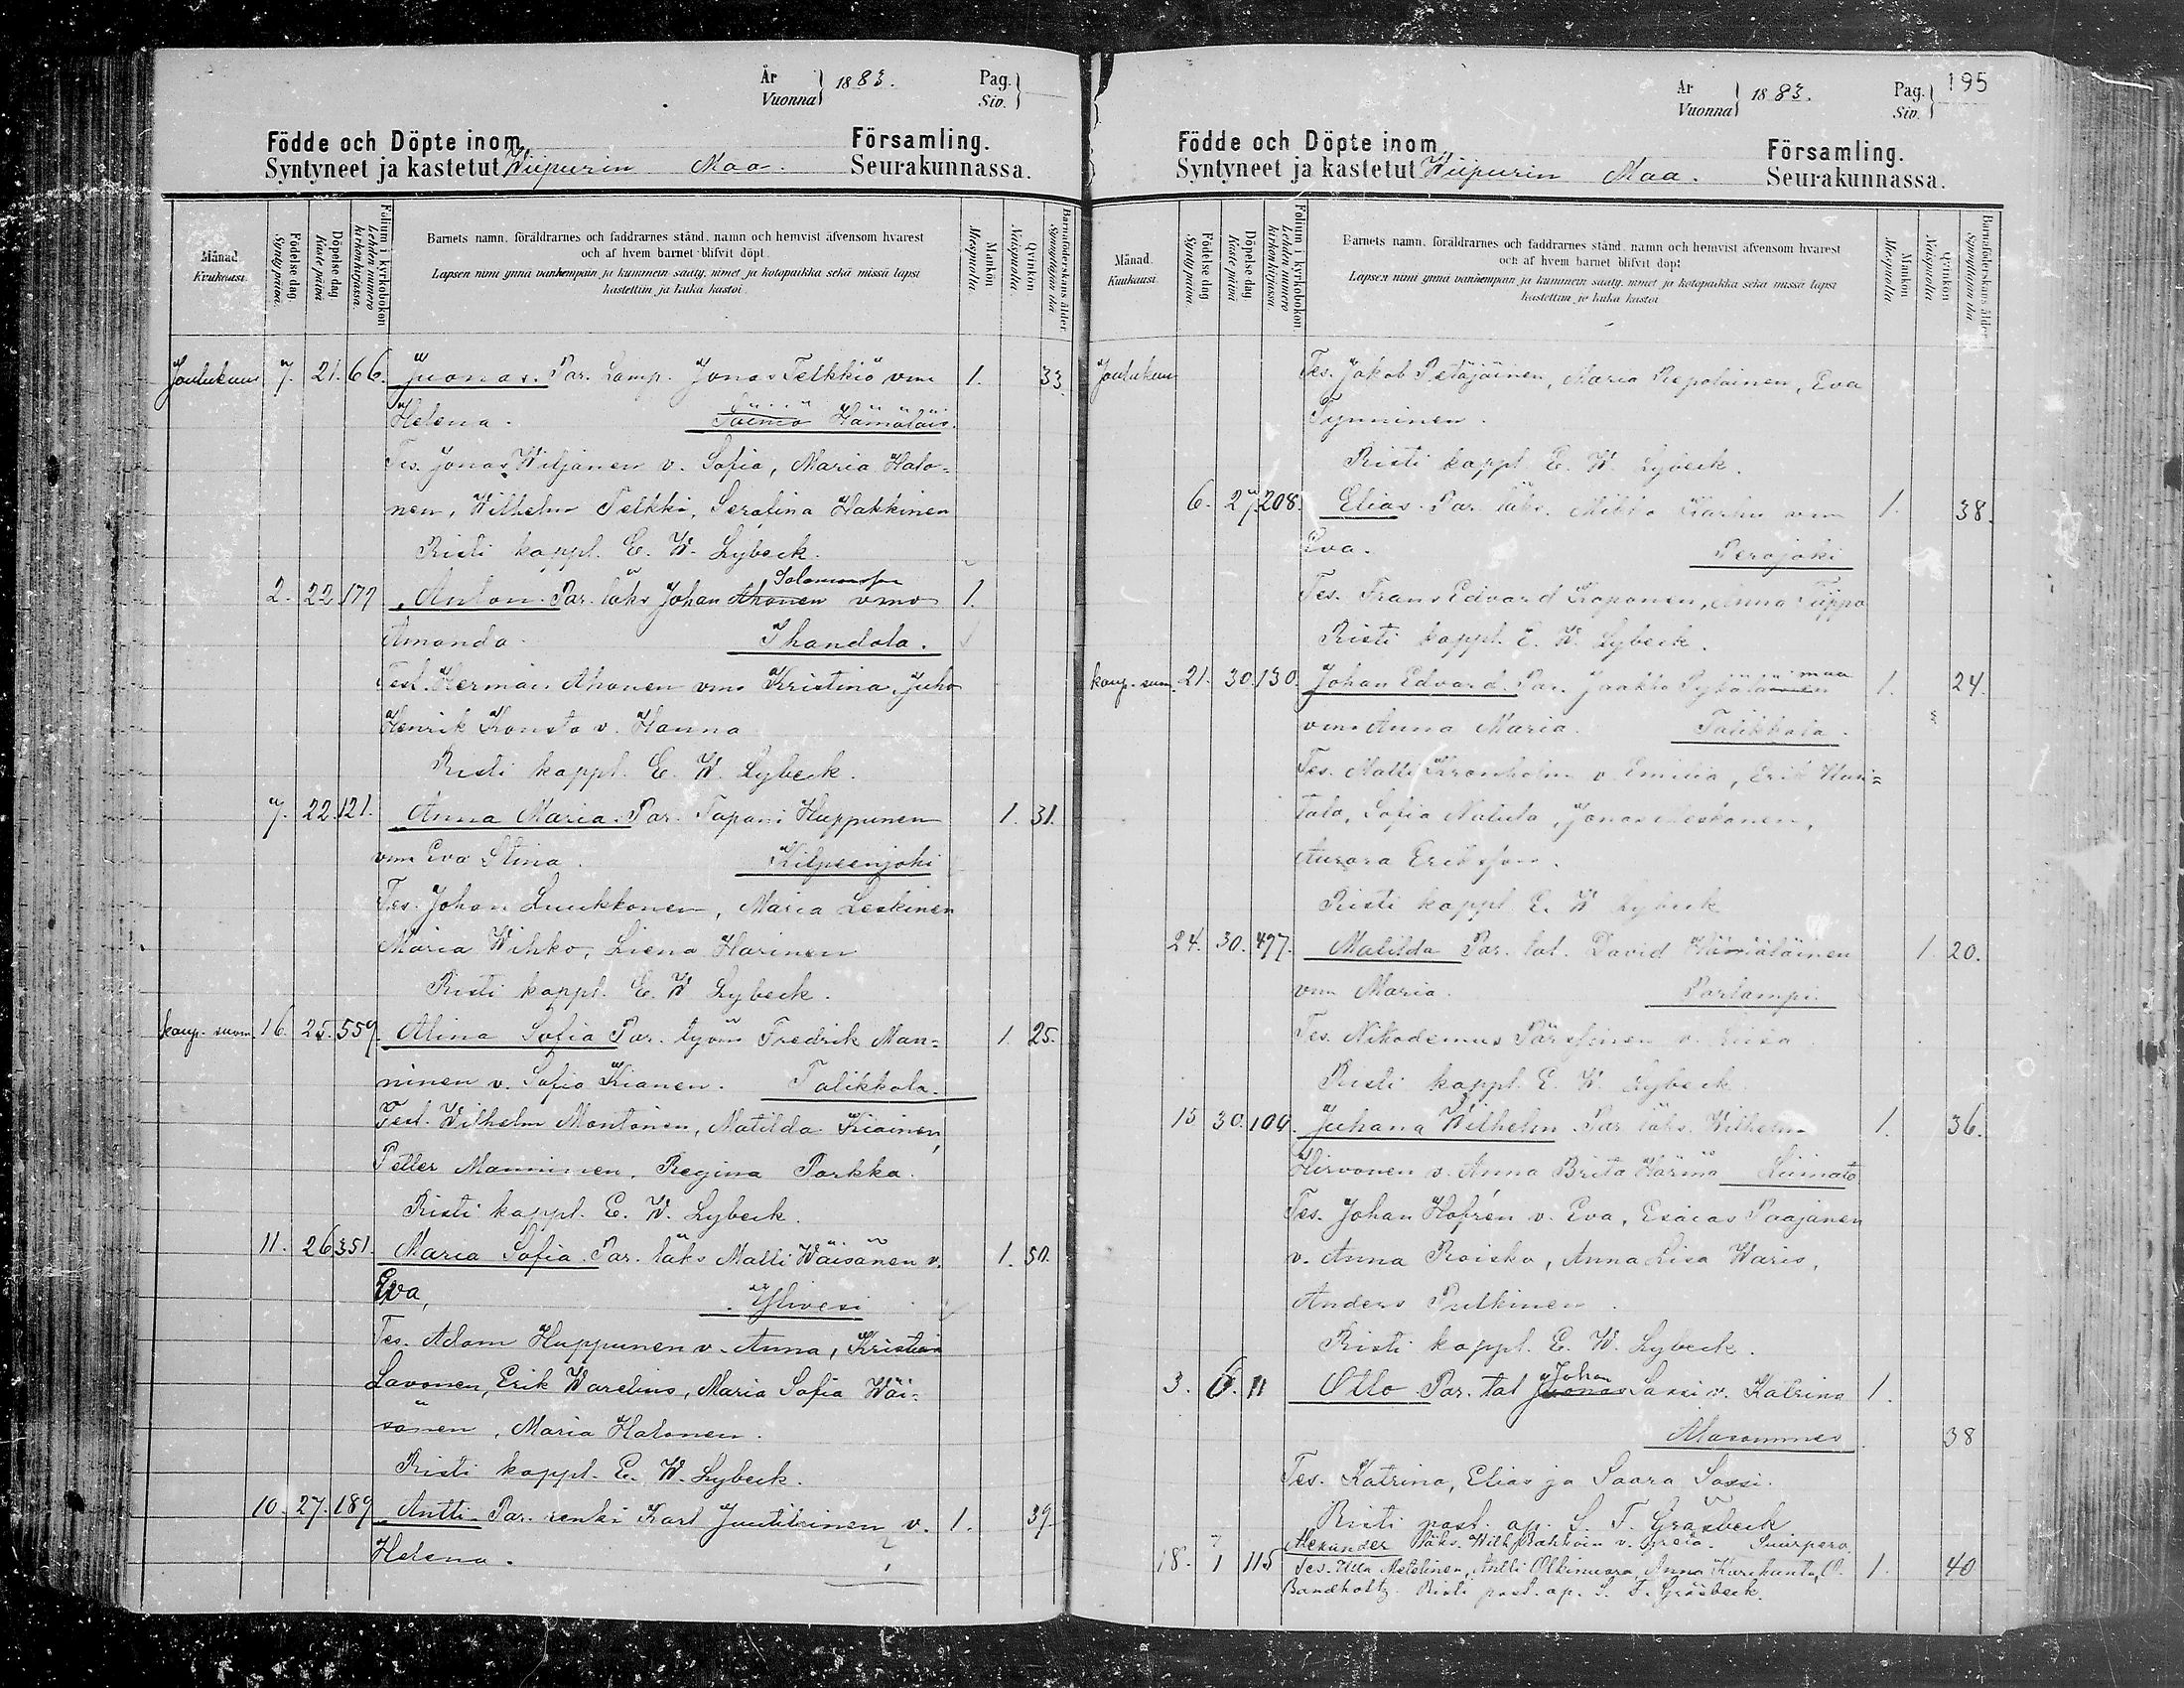 År
Vuonna } 1883.
Pag.
Siv. }
Födde och Döpte inom Församling.
Syntyneet ja kastetut Wiipurin Maa. Seurakunnassa.
Månad. Kuukausi.
Födelse dag. Syntypäivä.
Döpelse dag Kaste päivä
Folium i kyrkoboken Lehden numero kirkonkirjassa.
Barnets namn, föräldrarnes och faddrarnes stånd, namn och hemvist äfvensom hvarest
och af hvem barnet blifvit döpt.
Lapsen nimi ynnä vanhempain ja kummein sääty, nimet ja kotopaikka sekä missä lapsi
kastettiin ja kuka kastoi.
Mankön Miespuolia.
Qvinkön Naispuolia.
Barnaföderskans ålder Synnyttäjän ikä
Joulukuu 7. 21. 66. Juonas. Par. Lamp. Jonas Telkkiö vmo 1. 33.
Helena. Hämäläis.
Tes. Jonas Wiljanen v. Sofia, Maria Halo-
nen, Wilhelm Telkki, Serafina Hakkinen
Risti kappl. E. W. Lybeck.
2. 22. 177 Anton. Par. läks Johan Ahonen Salomonsson vmo 1.
Amanda. Ihandala.
Test. Herman Ahonen vmo Kristina, Juho
Henrik Konsta v. Hanna
Risti kappl. E. W. Lybeck.
7. 22. 121. Anna Maria. Par. Tapani Huppunen 1. 31.
vmo Eva Stina. Kilpeenjoki
Tes. Johan Luukkonen, Maria Leskinen
Maria Wihko, Liena Harinen
Risti kappl. E. W. Lybeck.
kaup. suom. 16. 25. 559. Alina Sofia Par. työm Fredrik Man- 1. 25.
ninen v. Sofia Kianen. Talikkala.
Test. Wilhelm Montonen, Matilda Kiainen,
Petter Manninen, Regina Parkka.
Risti kappl. E. W. Lybeck.
11. 26. 351. Maria Sofia. Par. läks Matti Wäisänen v. 1. 50.
Eva, Ylivesi
Tes. Adam Huppunen v. Anna, Kristian
Lavonen, Erik Warelius, Maria Sofia Wäi-
sänen, Maria Halonen.
Risti kappl. E. W. Lybeck.
10. 27. 189. Antti. Par. renki Karl Juutilainen v. 1. 39.
Helena.
År
Vuonna } 1883.
Pag.
Siv. } 195
Födde och Döpte inom Församling.
Syntyneet ja kastetut Wiipurin Maa. Seurakunnassa.
Månad. Kuukausi
Födelse dag Syntypäivä.
Döpelse dag Kaste päivä
Folium i kyrkoboken. Lehden numero kirkonkirjassa.
Barnets namn, föräldrarnes och faddrarnes stånd, namn och hemvist äfvensom hvarest
och af hvem barnet blifvit döpt
Lapsen nimi ynnä vanhempain ja kummein sääty, nimet ja kotopaikka sekä missä lapsi
kastettiin ja kuka kastoi
Mankön Miespuolia
Qvinkön Naispuolia
Barnaföderskans ålder Synnyttäjän ikä
Joulukuu Tes. Jakob Petäjäinen, Maria Repolainen, Eva
Tynninen.
Risti kappl. E. W. Lybeck.
6. 27. 208. Elias. Par. läks. Mikko Karhu vmo 1. 38.
Eva. Perojoki
Tes. Frans Edvard Kaponen, Anna Tuppo
Risti kappl. E. W. Lybeck.
kaup. suom. 21. 30. 130. Johan Edvard. Par. Jaakko 1. 24.
vmo Anna Maria. Talikkala.
Tes. Matti Kronholm v. Emilia, Erik Uusi-
talo, Sofia, Jonas Meskanen,
Aurora Eriksson.
Risti kappl. E. W. Lybeck
24. 30. 497. Matilda Par. tal. David Hämäläinen 1. 20.
vmo Maria. Parlampi.
Tes. Nikodemus Pärssinen v. Luisa
Risti kappl. E. W. Lybeck
15 30. 100. Juhana Wilhelm. Par. läks. Wilhelm 1. 36.
Hirvonen v. Anna Brita Härmä
Tes. Johan Hofrén v. Eva, Esaias Paajanen
v. Anna Roisko, Anna Lisa Waris,
Anders Pulkinen.
Risti kappl. E. W. Lybeck.
3. 6. 11 Otto. Par. tal Juonas Johan Sassi v. Katrina 1.
38
Tes. Katrina, Elias ja Saara Sassi.
Risti past. ap. S. F. Gråsbeck
18. 7/1 115 Alexander Läks. Wilh. v. Greta. Suurpero. 1. 40
Tes. Ulla, Antti Olkinuora, Anna Karikanta, O.
Bandholtz. Risti past. ap. S. F. Gråsbeck.